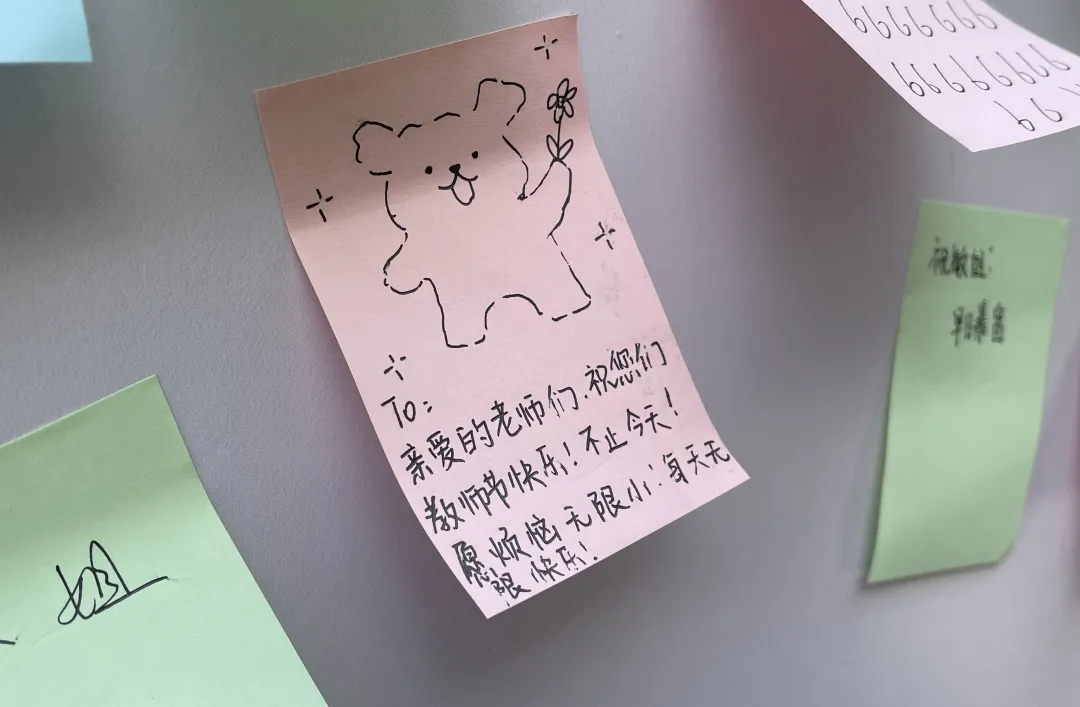 6666666
66666666
To:
亲爱的老师们.祝您们
教师节快乐!不止今天!
愿烦恼无限小:每天无
限快乐!
祝敏姐:
早日暴富
姐